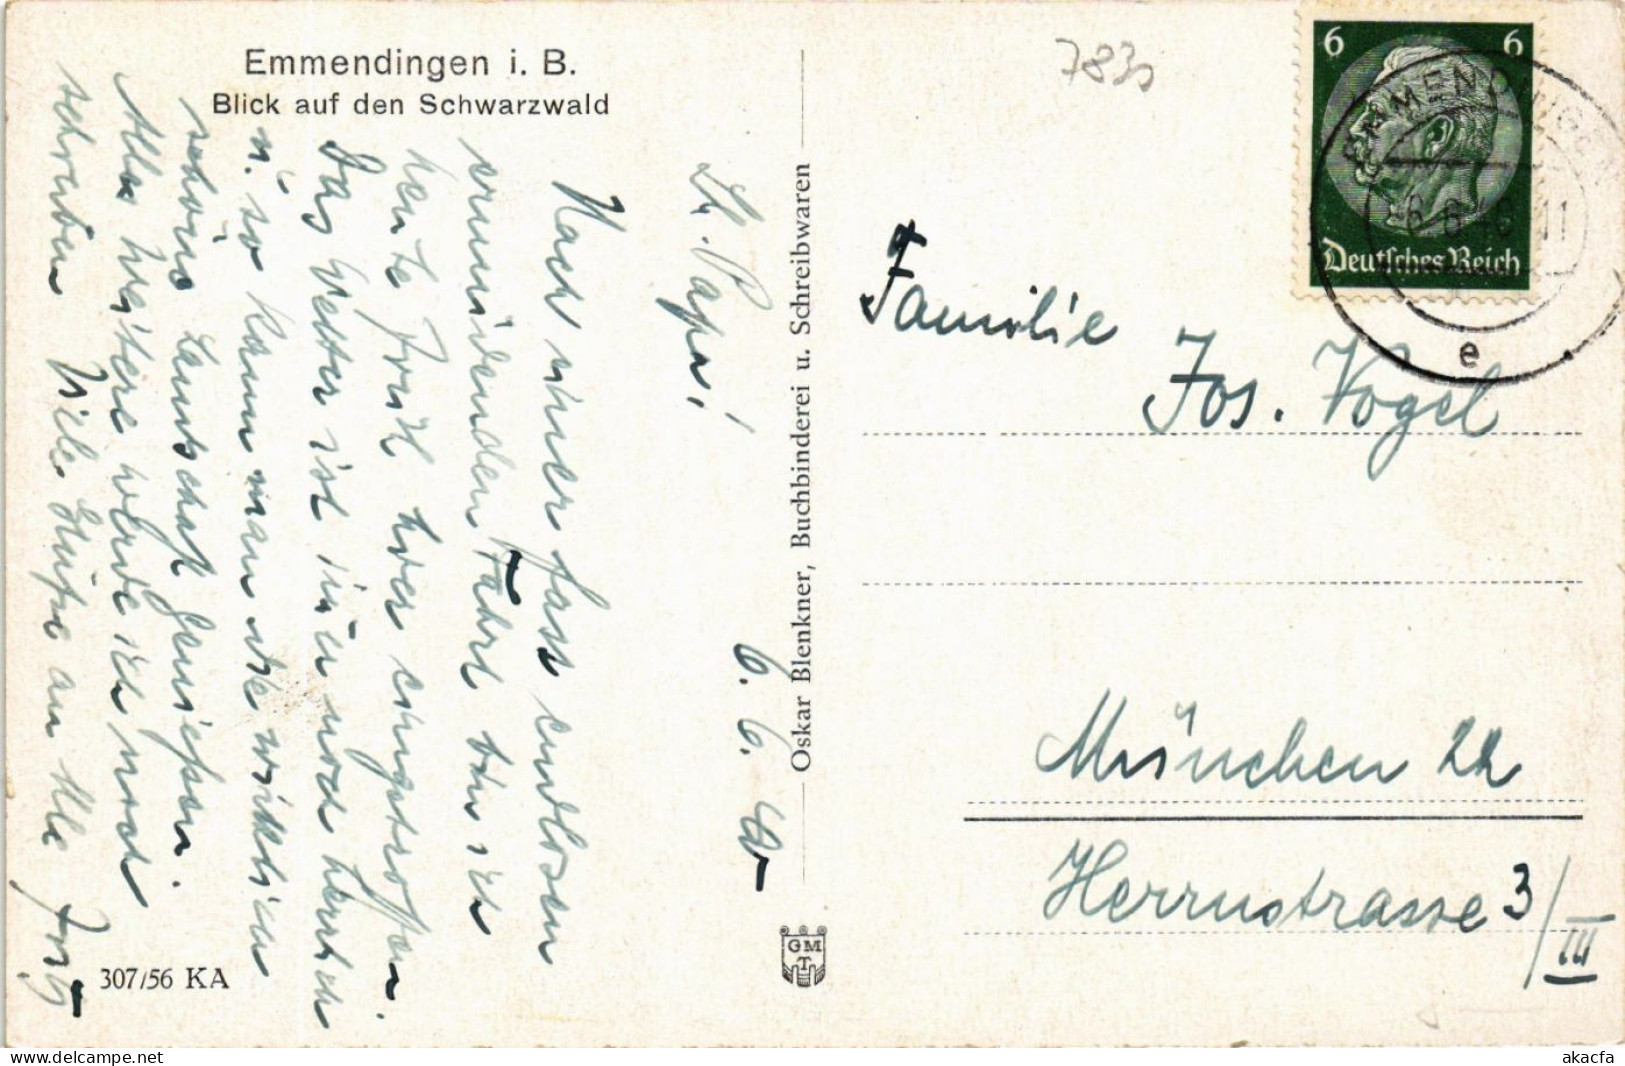 Emmendingen i. B.
Blick auf den Schwarzwald
6. 6. 40
Lb. Papa!
Nach einer fast endlosen
ermüdenden Fahrt bin ich
heute Früh hier eingetroffen.
Das Wetter ist immer noch herrlich
u. so kann man die wirklich
schöne Landschaft genießen.
Alles weitere werde ich noch
schreiben. Viele Grüße an Alle
307/56 KA
Oskar Blenkner, Buchbinderei u. Schreibwaren
GMT
783
6 6
Deutsches Reich
EMMENDINGEN
6.6.40 11
e
Familie
Jos. Vogel
München 22
Herrnstrasse 3/III
akacfa
www.delcampe.net